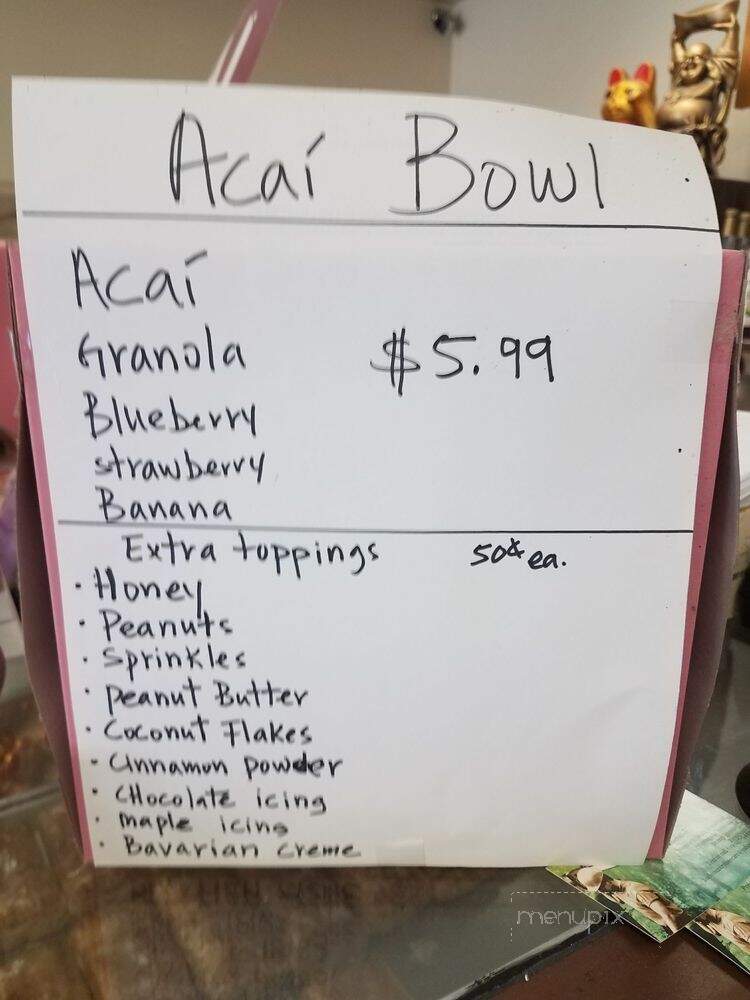 Acaí Bowl
Acaí
Granola
$5.99
Blueberry
strawberry
Banana
Extra toppings 50¢ ea.
· Honey
· Peanuts
· Sprinkles
· Peanut Butter
· Coconut Flakes
· Cinnamon powder
· CHocolate icing
· maple icing
· Bavarian creme
menupix